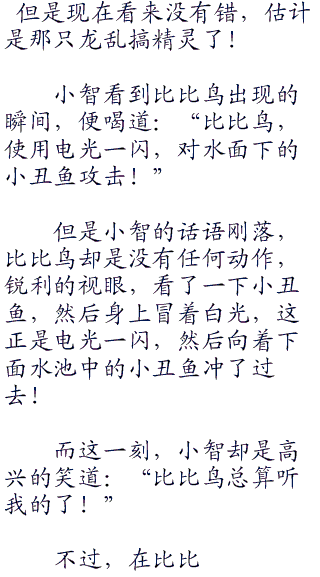 但是现在看来没有错，估计
是那只龙乱搞精灵了！
小智看到比比鸟出现的
瞬间，便喝道：“比比鸟，
使用电光一闪，对水面下的
小丑鱼攻击！”
但是小智的话语刚落，
比比鸟却是没有任何动作，
锐利的视眼，看了一下小丑
鱼，然后身上冒着白光，这
正是电光一闪，然后向着下
面水池中的小丑鱼冲了过
去！
而这一刻，小智却是高
兴的笑道：“比比鸟总算听
我的了！”
不过，在比比